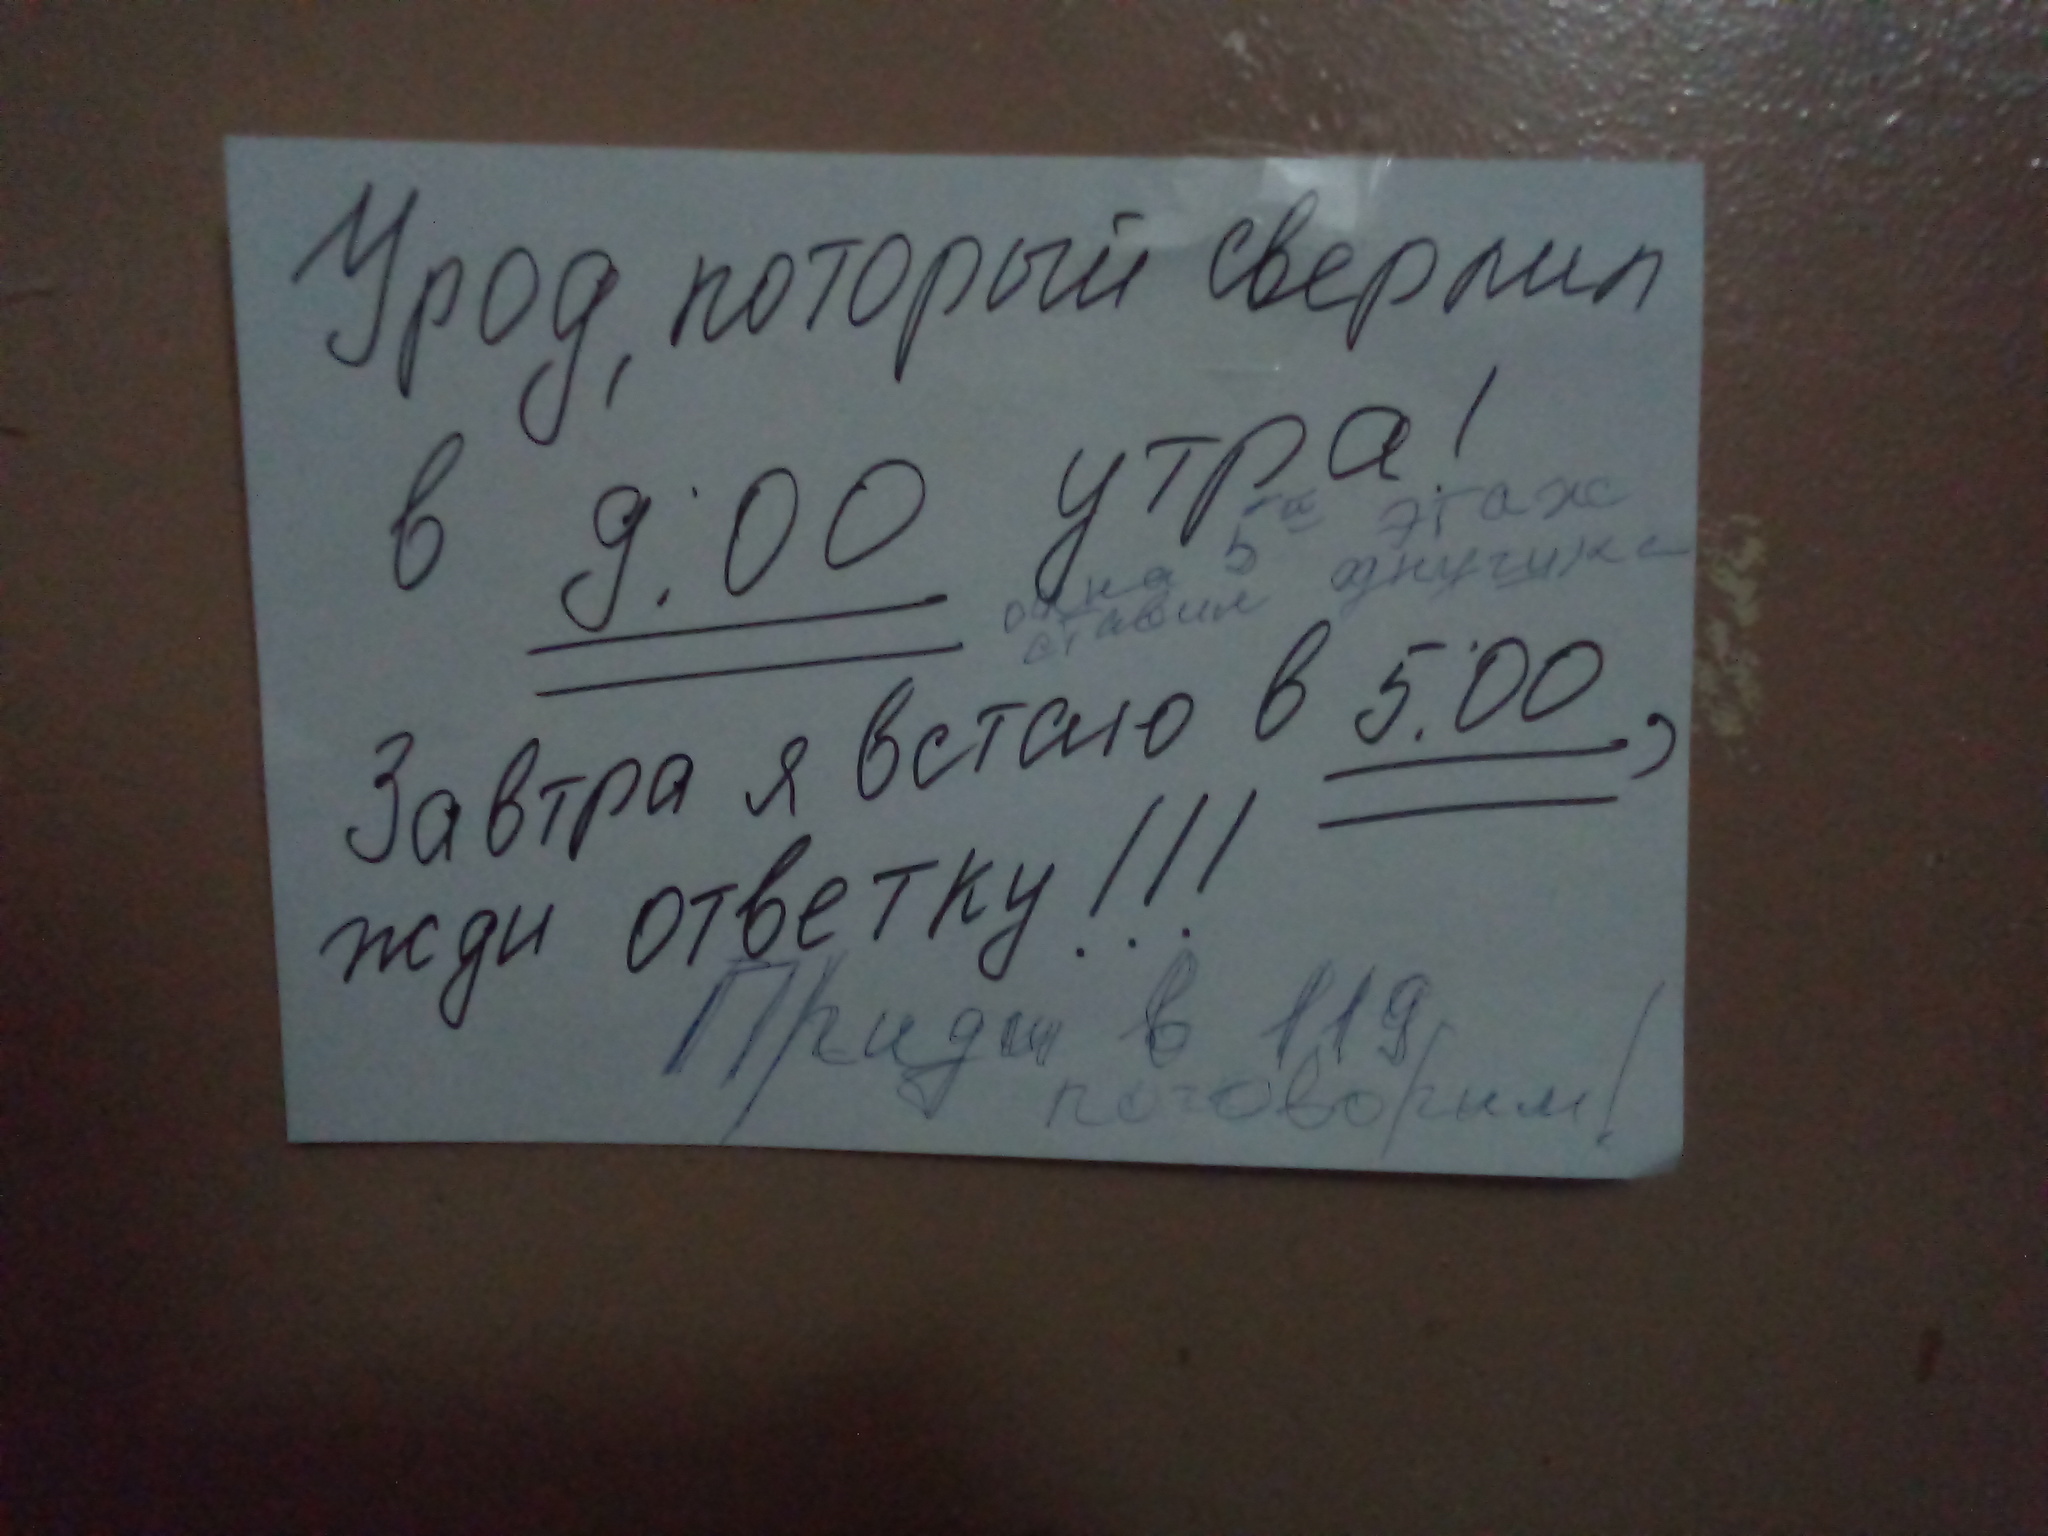 Урод, который сверлил
в 9:00 утра!
на 5 этаж
ставим
Завтра я встаю в 5:00,
жди ответку!!!
Приди в 119
поговорим!